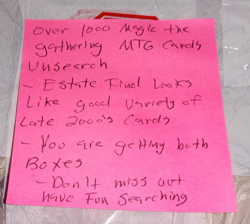 Over 1000 Magic the
gathering MTG Cards
Unsearch
- Estate Find Looks
Like good Variety of
Late 2000's Cards
- You are getting both
Boxes
- Don't miss out
have Fun Searching